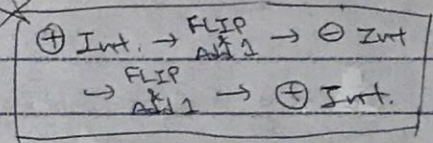 ⊕ Int. → FLIP & Add 1 → ⊖ Int
→ FLIP & Add 1 → ⊕ Int.